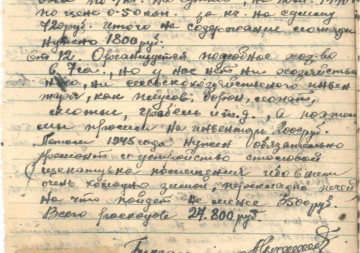 по цене 0-50 коп. за кг. на сумму
720 руб. Итого на содержание лошади
нужно 1800 руб.
ст 12. Организуется подсобное хоз-во
в 7 га., но у нас нет ни хозяйствен
ного, ни сельскохозяйственного инвен
таря, как плугов, борон, лопат,
грабель и т.д., а поэтому
мы просим на инвентарь руб.
1945 года нужен обязательно
ремонт и устройство столовой
помещения ибо в нем
очень холодно зимой, перекладка печей
На что пойдет не менее 3500 руб.
Всего расходов 27.800 руб.